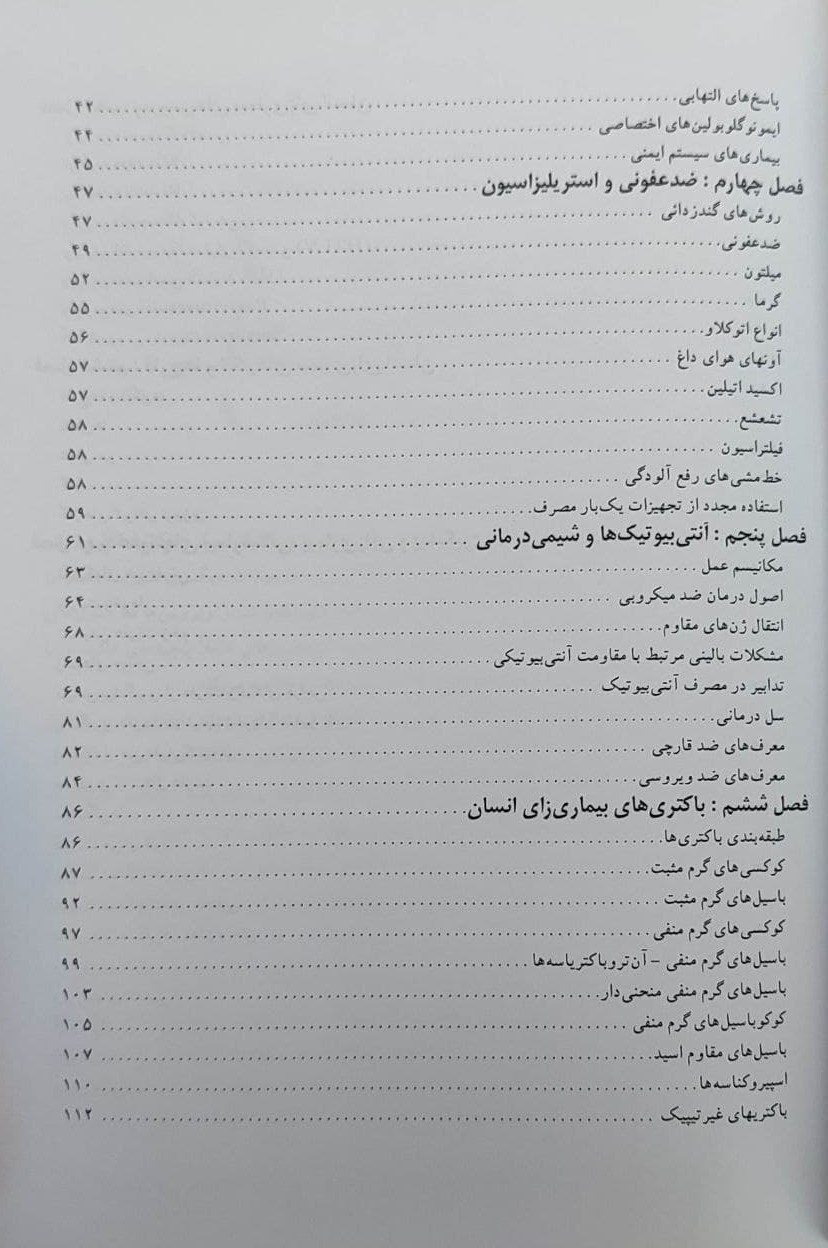 پاسخ‌های التهابی ........ ۴۲
ایمونوگلوبولین‌های اختصاصی ........ ۴۴
بیماری‌های سیستم ایمنی ........ ۴۵
فصل چهارم : ضدعفونی و استریلیزاسیون ........ ۴۷
روش‌های گندزدائی ........ ۴۷
ضدعفونی ........ ۴۹
میلتون ........ ۵۲
گرما ........ ۵۵
انواع اتوکلاو ........ ۵۶
آونهای هوای داغ ........ ۵۷
اکسید اتیلین ........ ۵۷
تشعشع ........ ۵۸
فیلتراسیون ........ ۵۸
خط‌مشی‌های رفع آلودگی ........ ۵۸
استفاده مجدد از تجهیزات یک‌بار مصرف ........ ۵۹
فصل پنجم : آنتی‌بیوتیک‌ها و شیمی‌درمانی ........ ۶۱
مکانیسم عمل ........ ۶۳
اصول درمان ضد میکروبی ........ ۶۴
انتقال ژن‌های مقاوم ........ ۶۸
مشکلات بالینی مرتبط با مقاومت آنتی‌بیوتیکی ........ ۶۹
تدابیر در مصرف آنتی‌بیوتیک ........ ۶۹
سل درمانی ........ ۸۱
معرف‌های ضد قارچی ........ ۸۲
معرف‌های ضد ویروسی ........ ۸۴
فصل ششم : باکتری‌های بیماری‌زای انسان ........ ۸۶
طبقه‌بندی باکتری‌ها ........ ۸۶
کوکسی‌های گرم مثبت ........ ۸۷
باسیل‌های گرم مثبت ........ ۹۲
کوکسی‌های گرم منفی ........ ۹۷
باسیل‌های گرم منفی – آن‌تروباکتریاسه‌ها ........ ۹۹
باسیل‌های گرم منفی منحنی‌دار ........ ۱۰۳
کوکوباسیل‌های گرم منفی ........ ۱۰۵
باسیل‌های مقاوم اسید ........ ۱۰۷
اسپیروکتاسه‌ها ........ ۱۱۰
باکتریهای غیرتیپیک ........ ۱۱۲